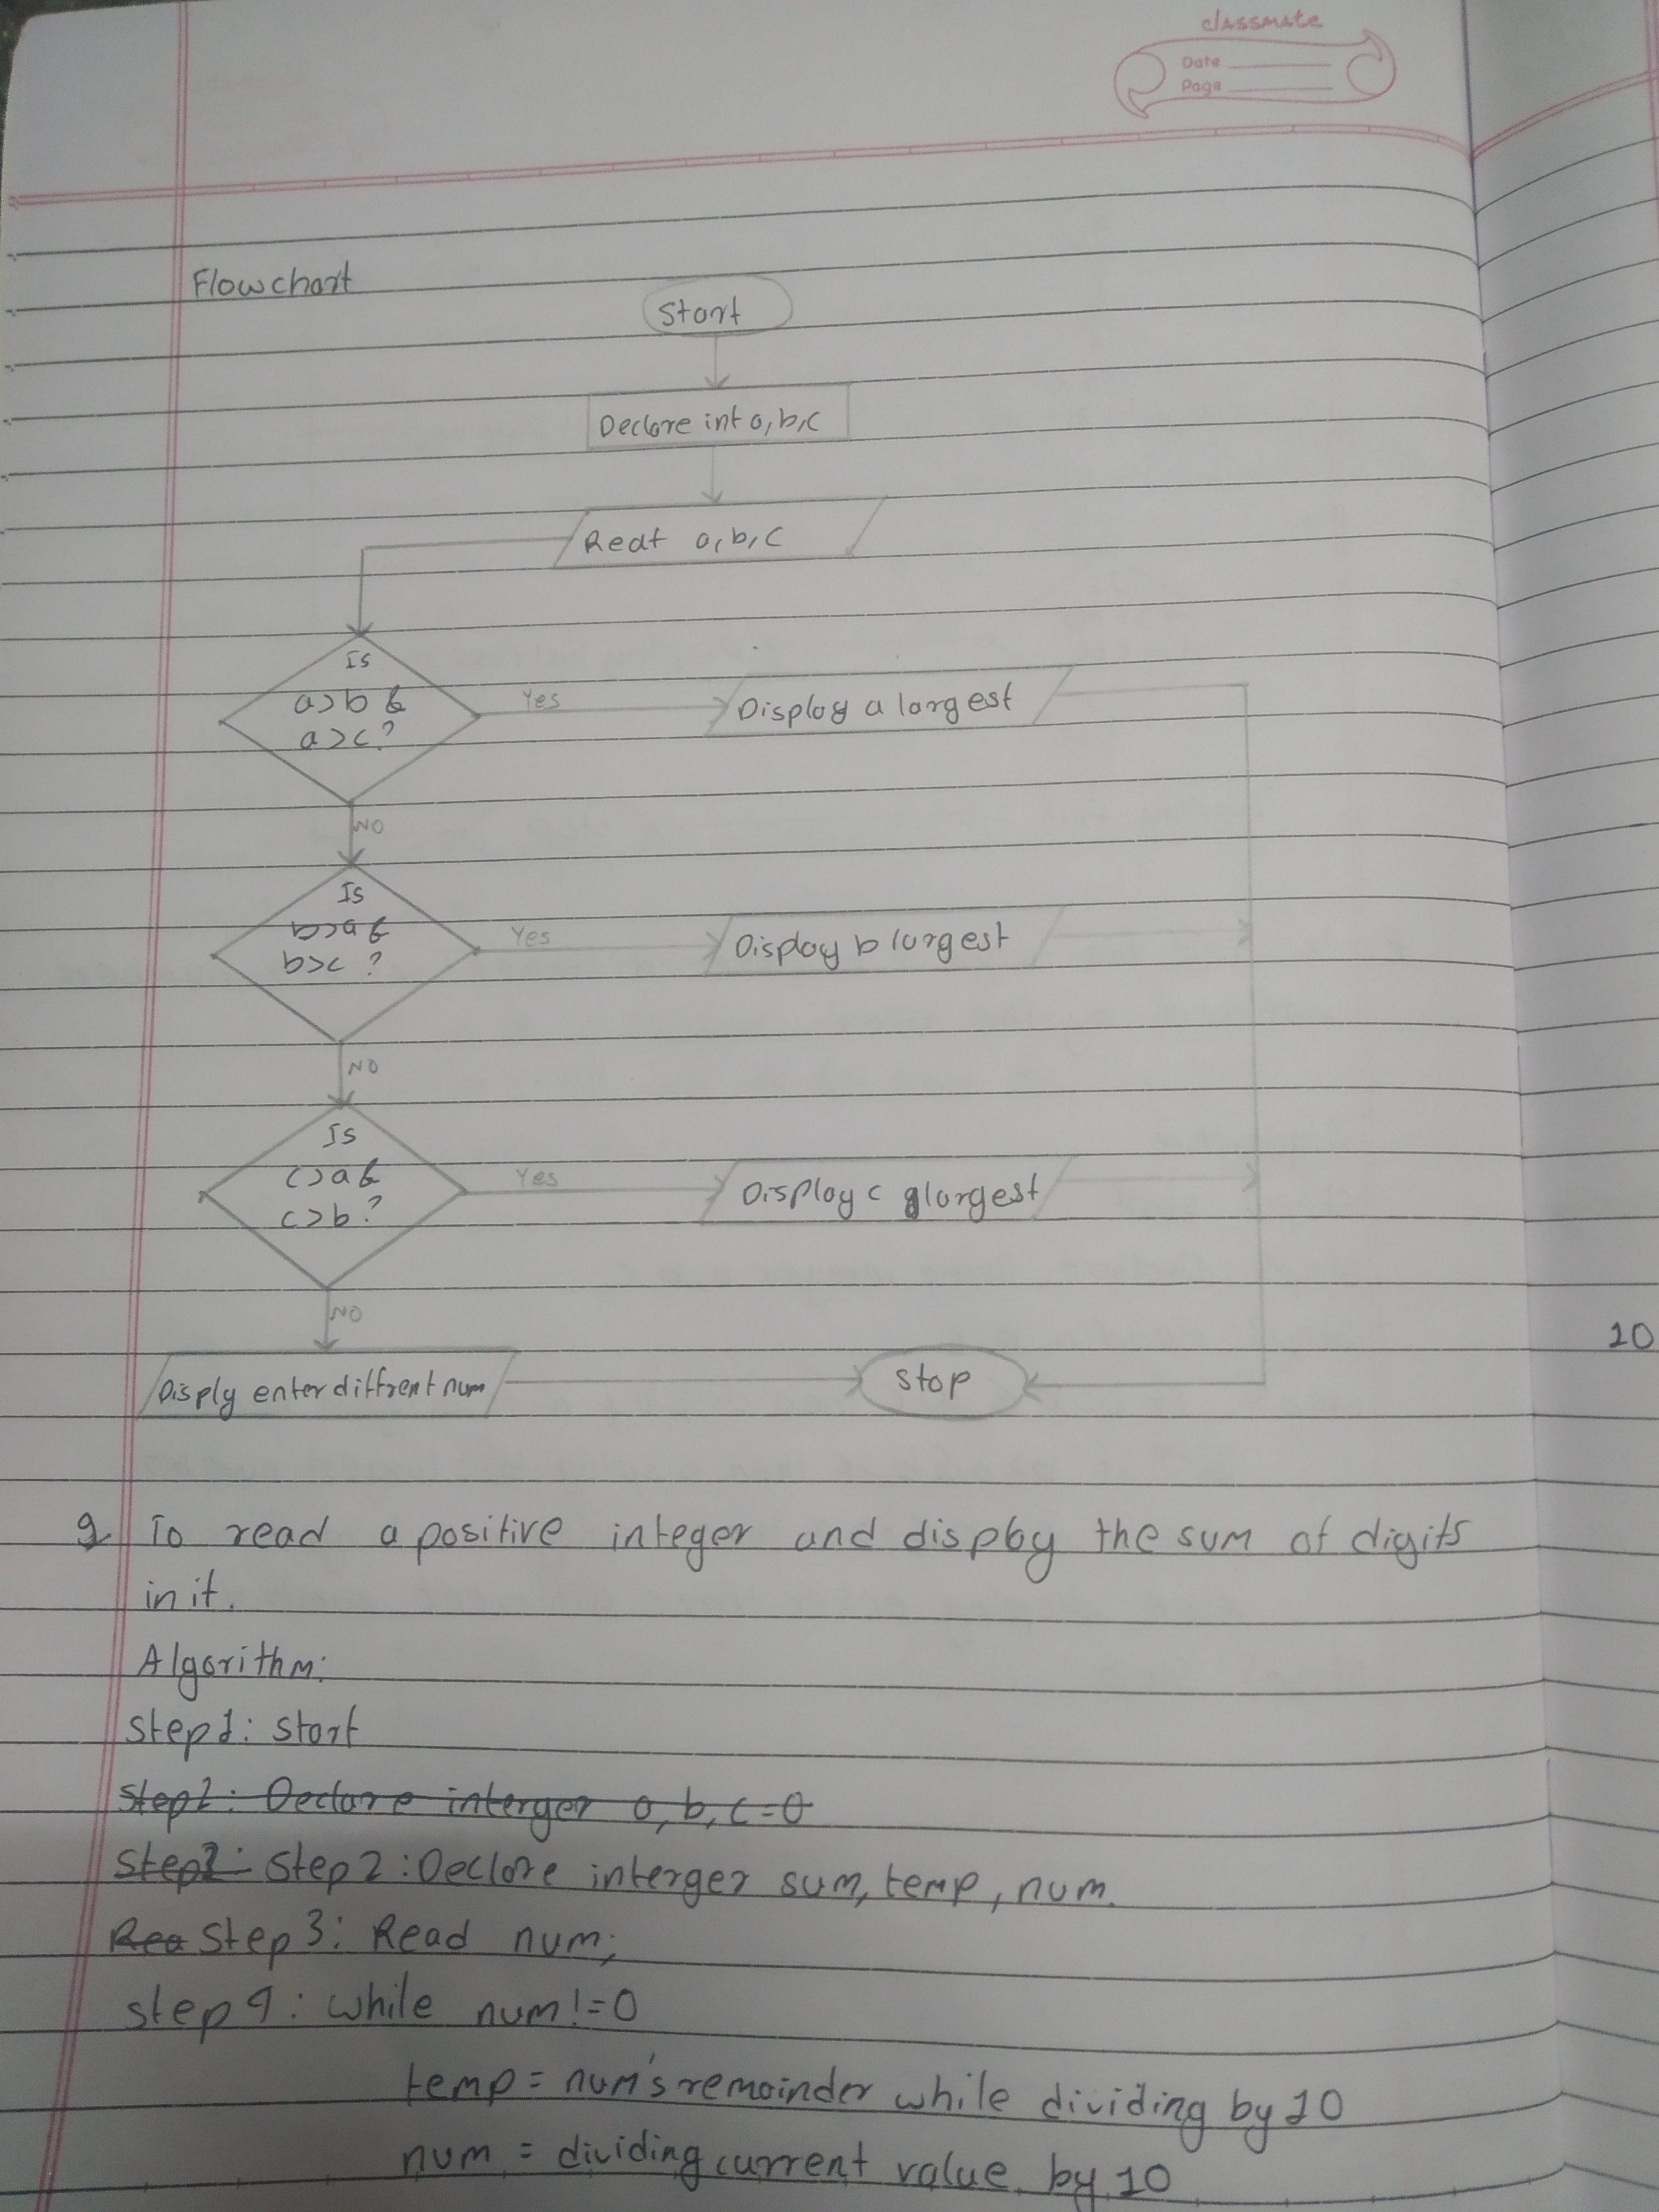 classmate
Date
Page
Flowchart
Start
Declare int a,b,c
Read a,b,c
Is
a>b &
a>c?
Yes
Display a largest
NO
Is
b>a &
b>c ?
Yes
Display b largest
NO
Is
c>a &
c>b?
Yes
Display c largest
NO
Disply enter diffrent num
Stop
10
9 To read a positive integer and display the sum of digits
in it.
Algorithm:
Step1: Start
Step2: Declare interger a, b, c=0
Step2: Step 2: Declare interger sum, temp, num.
Rea Step 3: Read num;
Step 4: While num!=0
temp = num's remainder while dividing by 10
num = dividing current value by 10